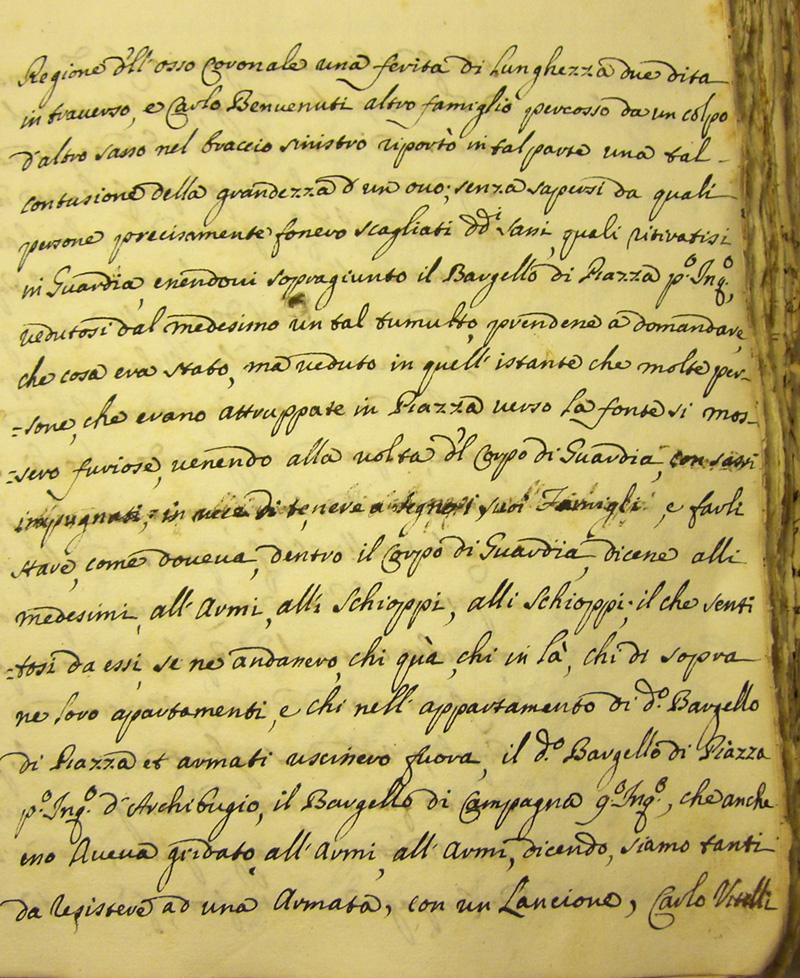 Regione dll' osso Coronale una ferita di lunghezza due dita
in traverso, e Carlo Benvenuti altro famiglio percosso da un colpo
d'altro sasso nel braccio sinistro riportò in tal parte una tal
contusione della grandezza d'un ovo; senza sapersi da quali
persone precisamente fossero scagliati ddi sassi, quali ritiratisi
in Guardia, essendovi sopragiunto il Bargello di Piazza po. Inqo.,
vedutosi dal medesimo un tal tumulto, prendesse a domandare,
che cosa era stato, ma veduto in quell' istante che molte per-
=sone, che erano attruppate in Piazza verso la fonte si mos-
=sero furiose, venendo alla volta dl Corpo di Guardia, con sassi
impugnati, in vece di tenere a segno i suoi Famigli, e farli
stare, come doveva, dentro il Corpo di Guardia, dicesse alli
medesimi, all' Armi, alli Schioppi, alli schioppi; il che senti
=tosi da essi, se ne andassero, chi quà, chi in là, chi di sopra
ne loro apartamenti, e chi nell' appartamento di do. Bargello
di Piazza et armati uscissero fuora, il do. Bargello di Piazza
po. Inqo. d'Archibugio, il Bargello di Campagna 9o. Inqo., che anche
esso Aveva gridato all' Armi, all' Armi, dicendo, siamo tanti
da resistere ad una Armata, con un Lancione, Carlo Vitelli